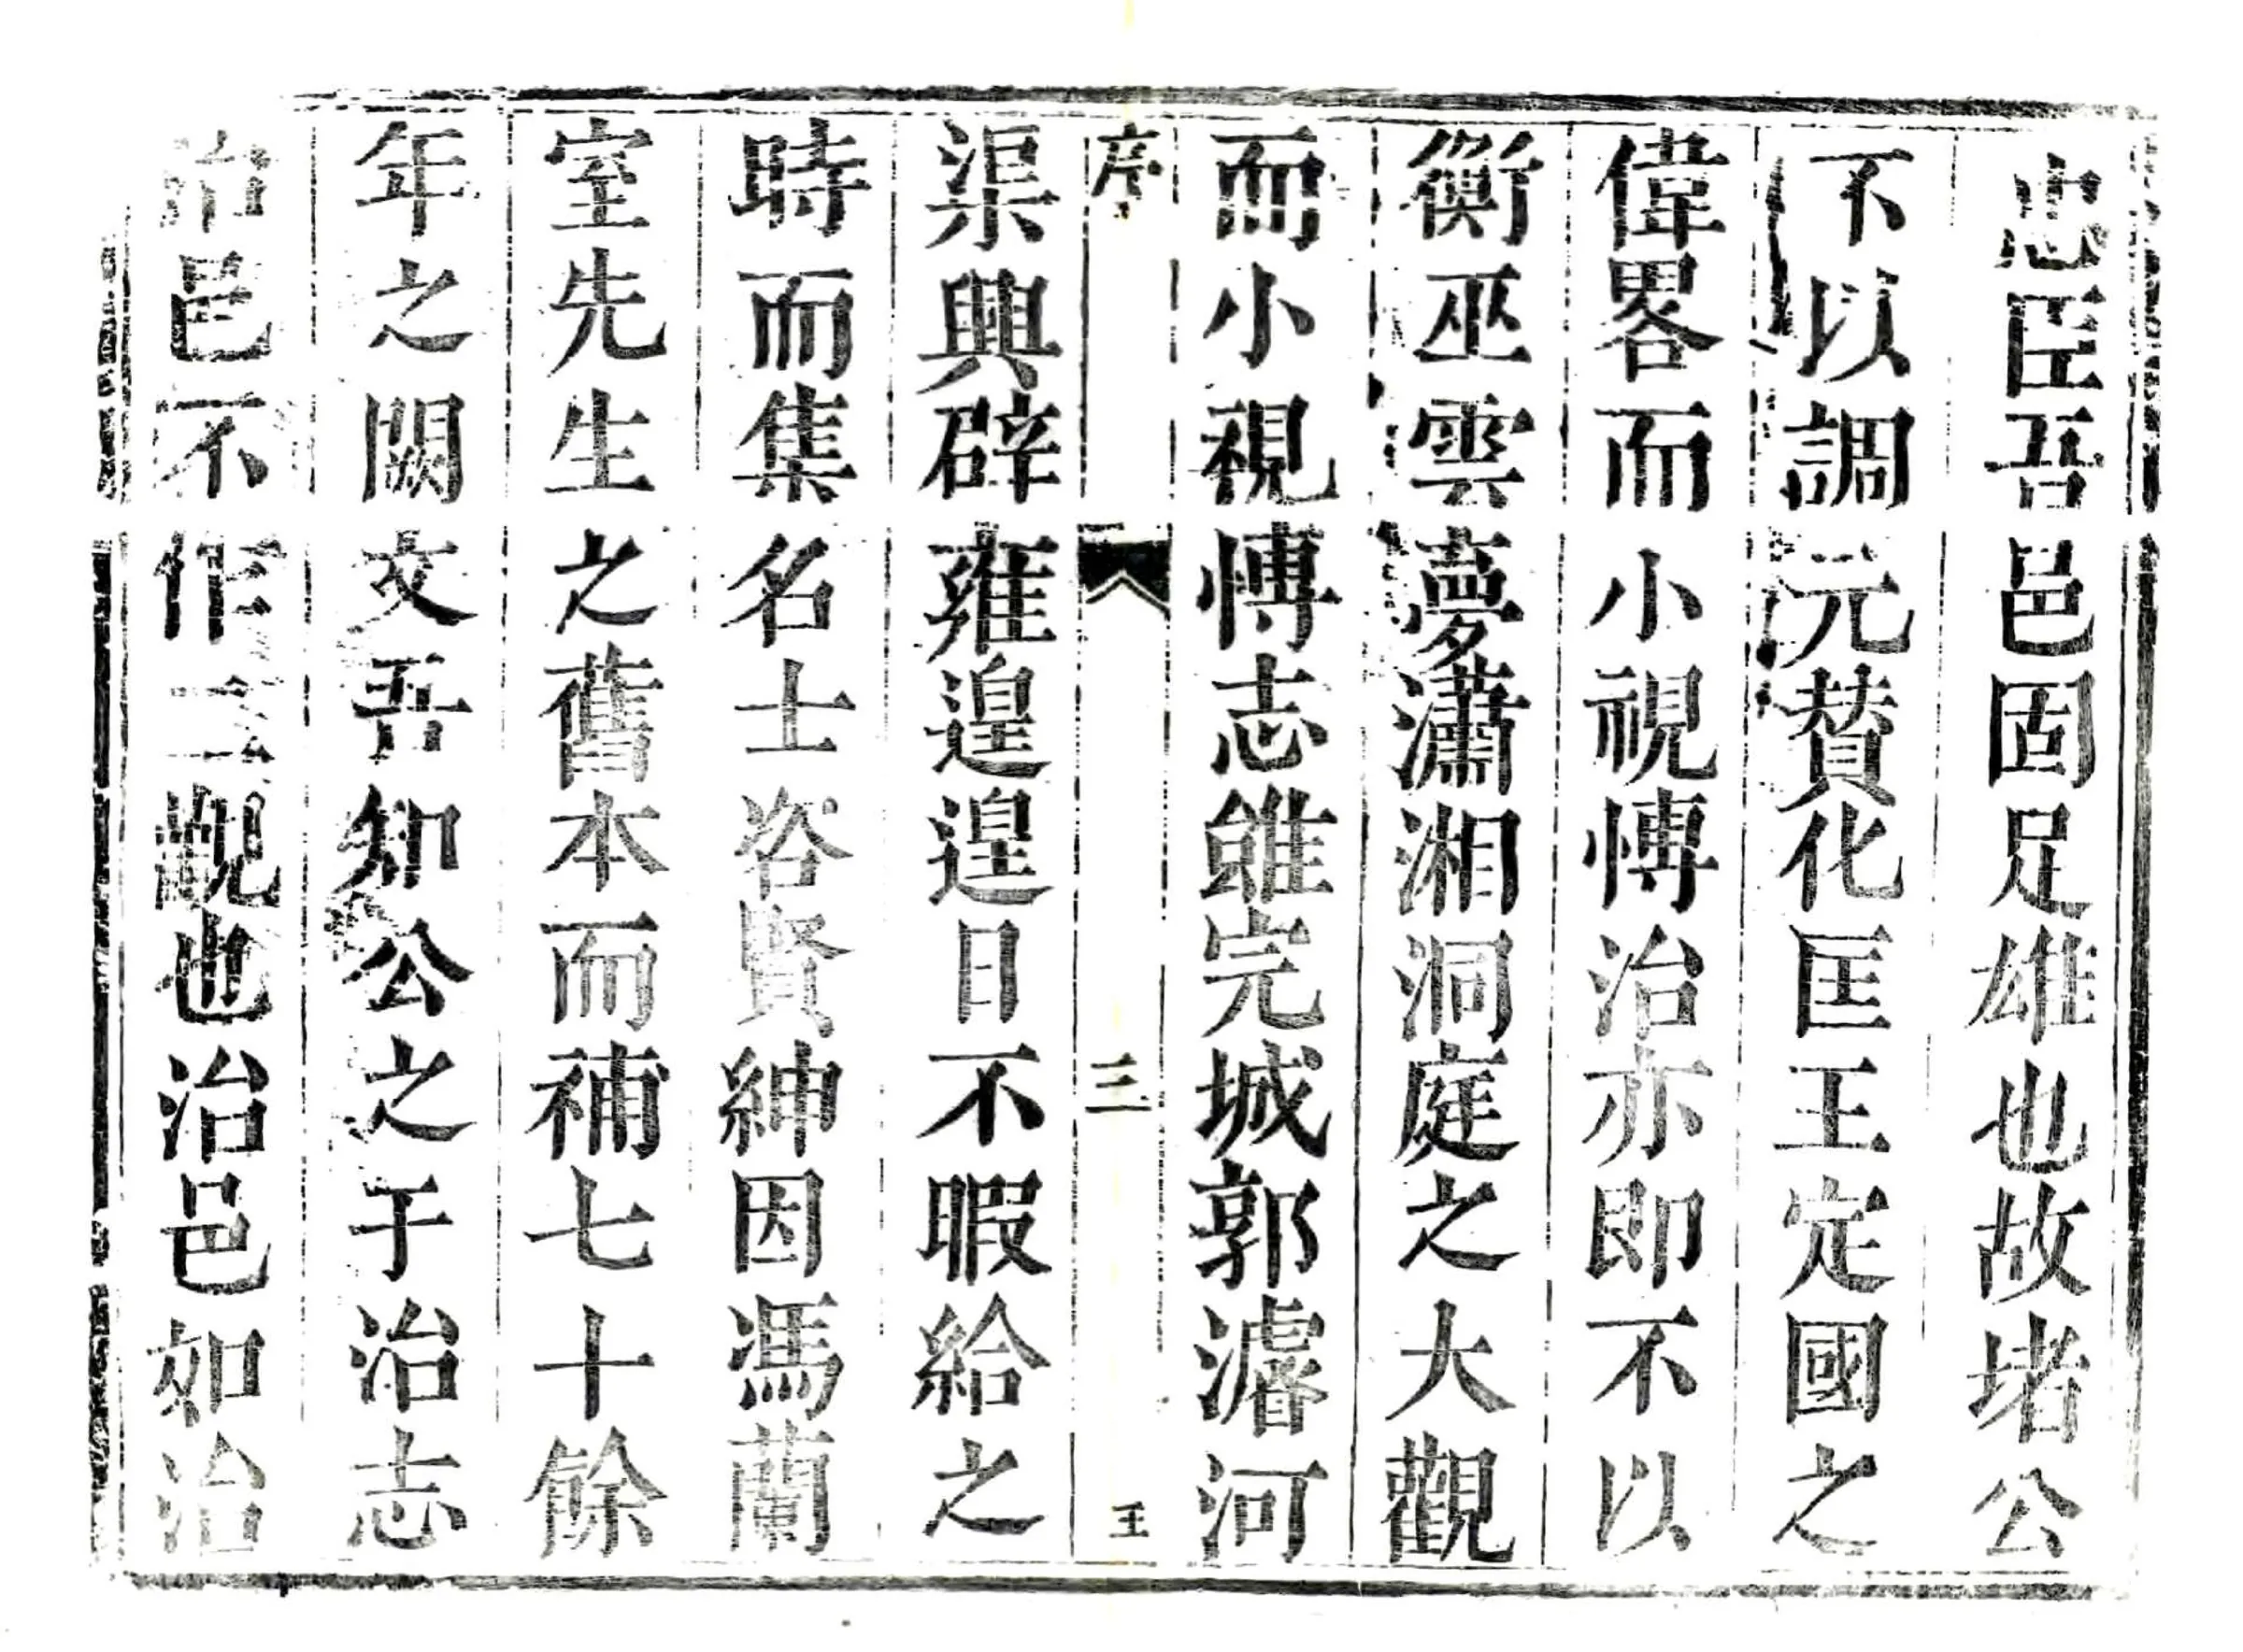 忠臣吾邑固足雄也故堵公
不以調元賛化匡王定國之
偉畧而小視慱治亦即不以
衡巫雲夢瀟湘洞庭之大觀
而小視慱志雖完城郭濬河
序 三 王
渠興辟雍遑遑日不暇給之
時而集名士咨賢紳因馮蘭
室先生之舊本而補七十餘
年之闕文吾知公之于治志
治邑不作二觀也治邑如治